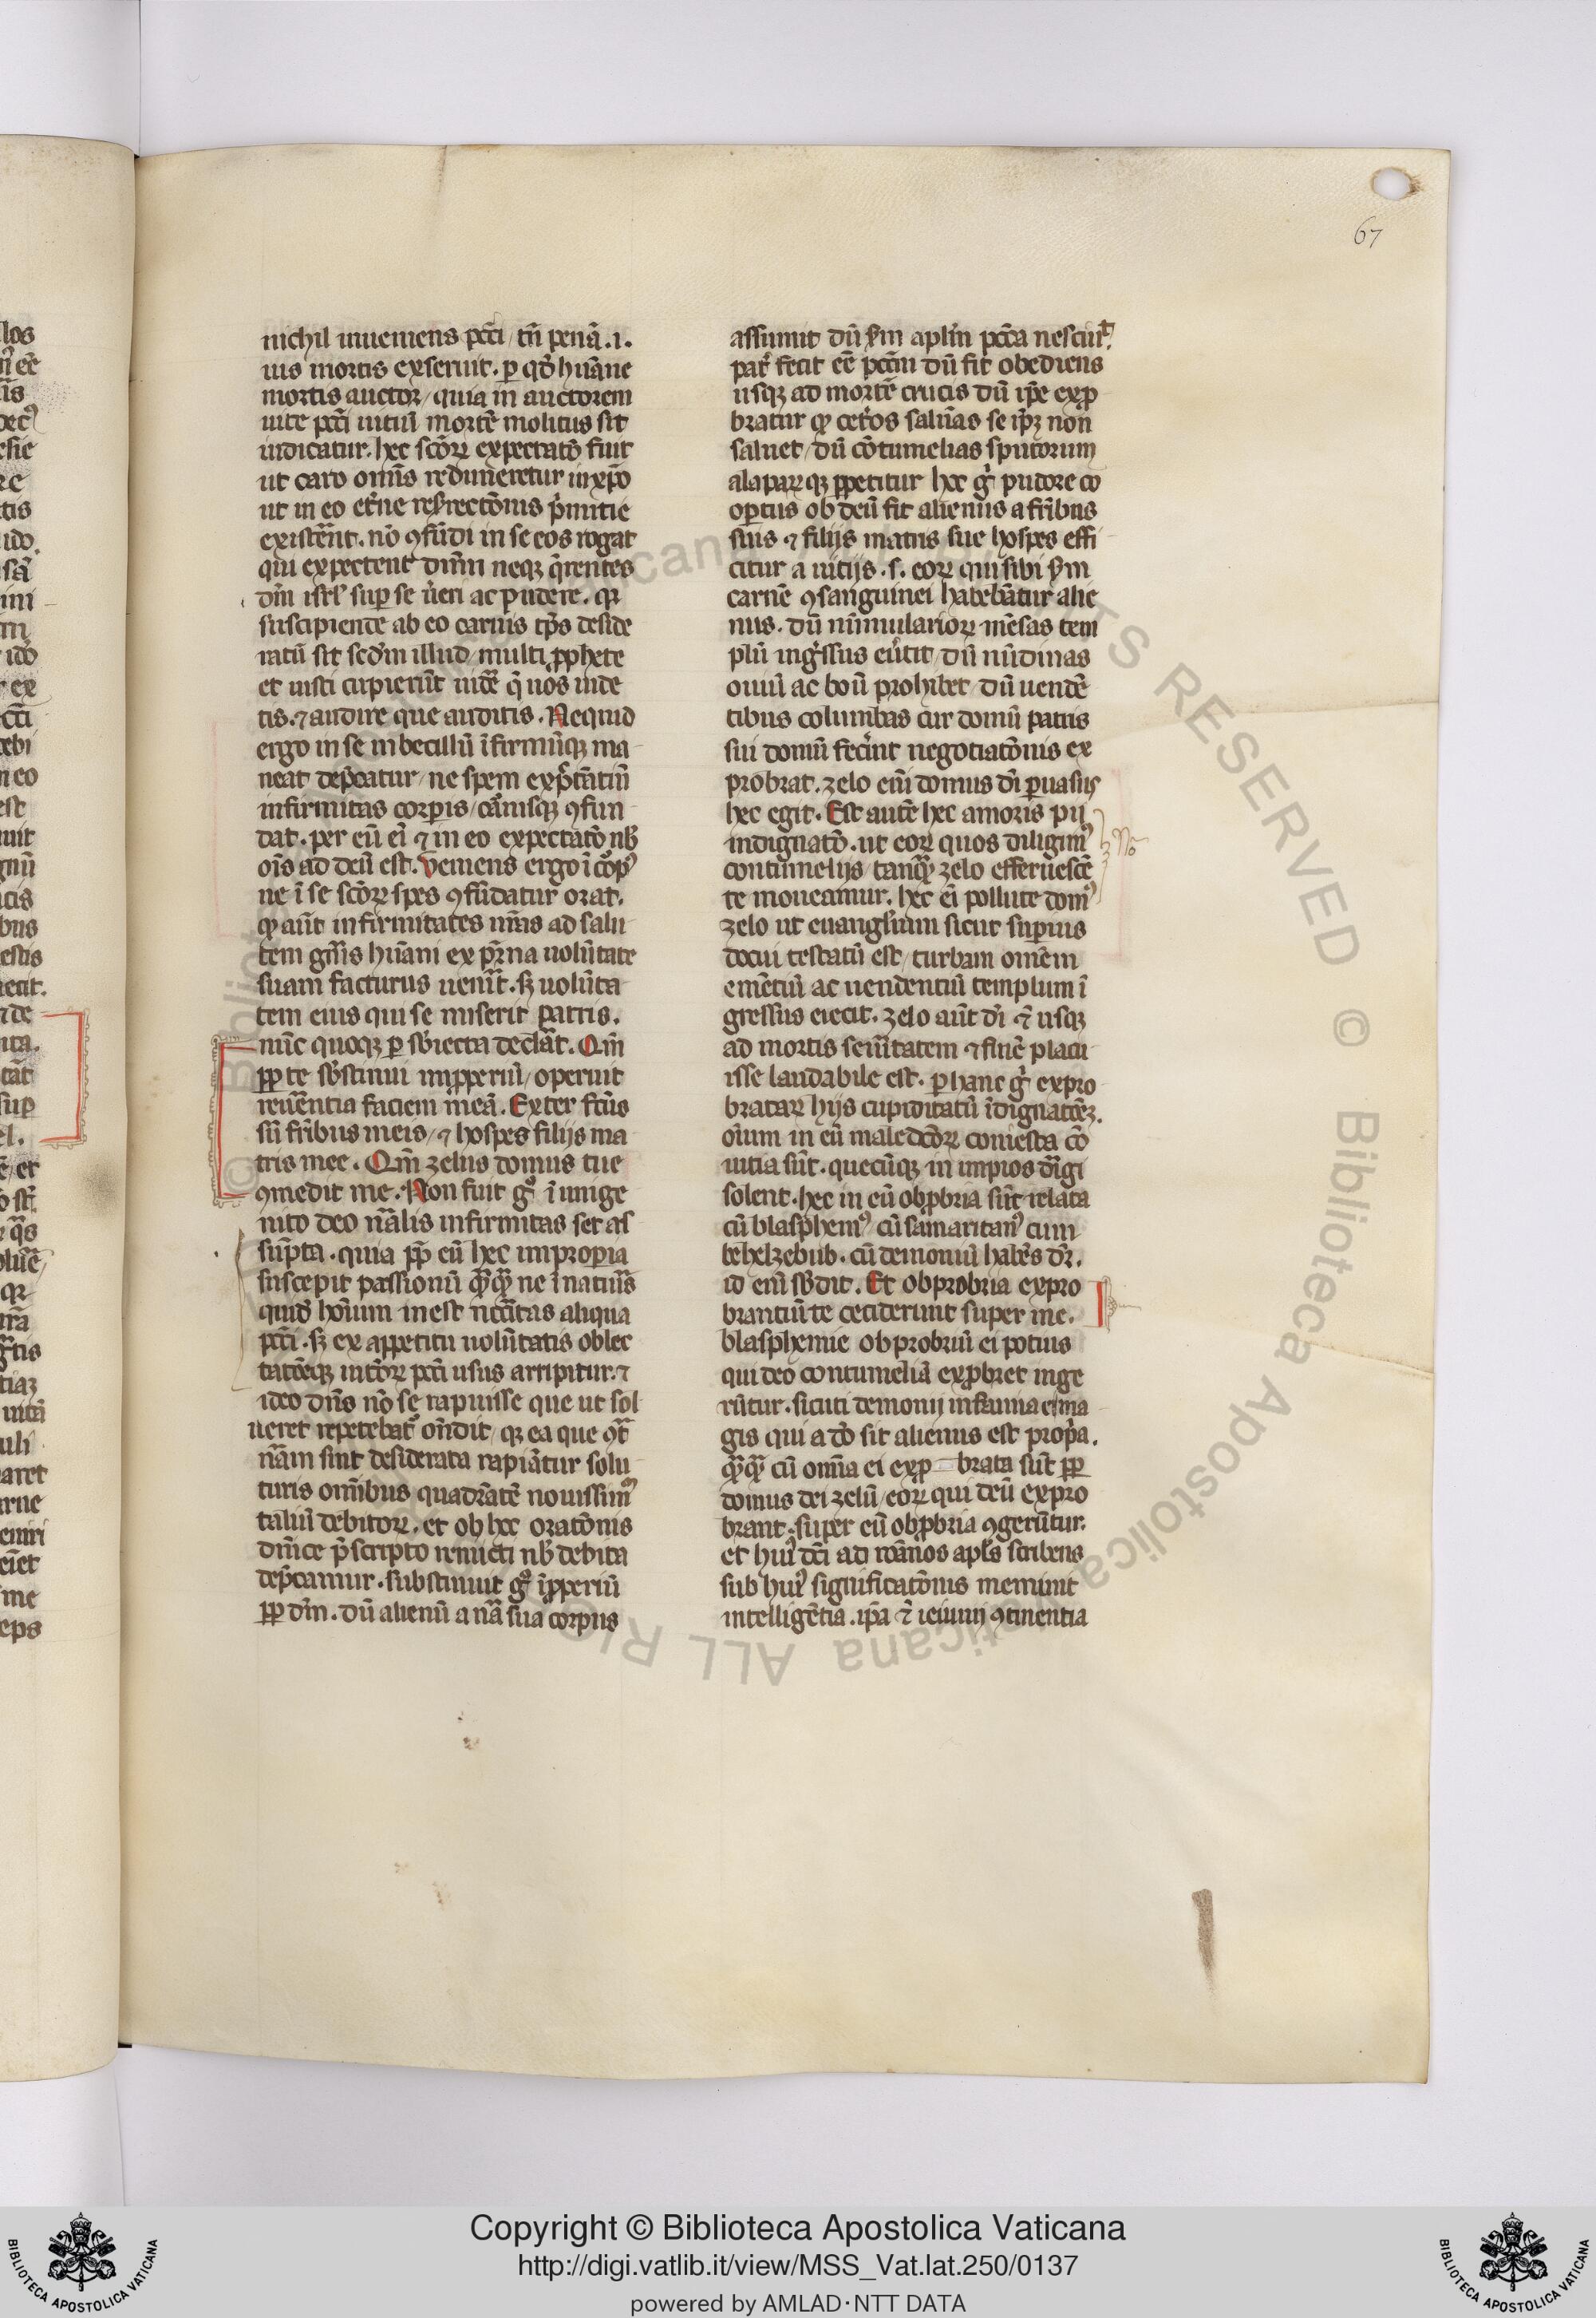 67
nichil inueniens pcc̄i / tn̄ penā .i.
uis mortis exseruit. p qd̄ hūane
mortis auctor / quia in auctorem
uite pcc̄i uitiū mortē molitus sit
iudicatur. hec sc̄oꝝ expectatō fuit
ut caro omīs redimeretur in xp̄o
ut in eo et̄ne resrectōnis p̄mitie
existēnt. nō ꝯfūdi in se eos rogat
qui expectent dn̄m neqꝫ q̄rentes
dm̄ isrl̓ sup se ūeri ac pudere. qꝛ
suscipiente ab eo carnis tp̄s deside
ratū sit scd̄m illud / multi ꝓphete
et iusti cupierūt uidē q̄ uos uide
tis. ⁊ audire que auditis. Nequid
ergo in se inbecillū īfirmūqꝫ ma
neat dep̄catur / ne spem exp̄ctātiū
infirmitas corꝑis / cānisqꝫ ꝯfun
dat. per eū eī ⁊ in eo expectatō nb̄
oīs ad deū est. Veniens ergo ī cōꝑ᷒
ne ī se sc̄oꝝ spes ꝯfūdatur orat.
ꝙ aūt infirmitates nr̄as ad salu
tem gn̄is hūani ex pr̄na uolūtate
suam facturus uenīt. sꝫ uolūta
tem eius qui se miserit patris.
nūc quoqꝫ ꝑ sb̄iecta declāt. Qm̄
ꝓp te sb̄stinui imꝓperiū / operuit
reuēntia faciem meā. Exter fc̄us
sū fr̄ibus meis / ⁊ hospes filijs ma
tris mee. Qm̄ zelus domus tue
ꝯmedit me. Non fuit gͦ ī unige
nito deo nāl̄is infirmitas set as
sūpta. quia ꝓp eū hec improꝑia
suscepit passionū qͣꝙͣ ne ī natiuīs
quid̓ hoīum inest ncc̄itas aliqua
pcc̄i. sꝫ ex appetitu uolūtatis oblec
tatōeqꝫ uitōꝝ pcc̄i usus arripitur. ⁊
ideo dn̄s nō se rapuisse que ut sol
ueret repetebat̓ on̄dit / qꝛ ea que ꝯtͣ
nām sint desiderata rapiātur solu
turis omībus quadrātē nouissim᷒
taliū debitoꝝ. et ob hec oratōnis
dnīce p̄scripto remitti nb̄ debita
dep̄camur. substinuit gͦ īꝓperiū
ꝓp dm̄. dū alienū a nā sua corpus
assumit dū scd̄m apl̄m pcc̄a nesciuit
pat̓ fecit eē pcc̄m dū fit obediens
usqꝫ ad mortē crucis dū ip̄e exꝓ
bratur ꝙ cet̓os saluās se ip̄ꝫ non
saluet / dū cōtumelias sputorum
alapaꝝqꝫ ꝑpetitur hec g̓ pudore co
oꝑtus ob deū fit alienus a fr̄ibus
suis ⁊ filijs matris sue hospes effi
citur a uitijs .s. eoꝝ qui sibi scd̄m
carnē ꝯsanguinei habebātur alie
nus. dū nūmularioꝝ mēsas tem
plū ingr̓ssus eūtit / dū nūdinas
ouiū ac boū prohibet / dū uendē
tibus columbas cur domū patris
sui domū fec̓int negotiatōnis ex
probrat. zelo enī domus dī ꝑuasus
hec egit. Est autē hec amoris pij
indignatō. ut eoꝝ quos diligim᷒ No
contumelijs / tanꝙͣ zelo efferuescē
te moueamur. hec eī pollute dom᷒
zelo ut euangl̄ium sicut suꝑius
docui testatū est / turbam omēm
emētiū ac uendentiū templum ī
gressus eiecit. zelo aūt dī ⁊̄ usqꝫ
ad mortis seuītatem ⁊ finē placu
isse laudabile est. ꝑ hanc g̓ expro
bratāꝝ hijs cupiditatū īdignatōeꝫ.
oīum in eū maledcōꝝ coniesta cō
uitia sūt. quecūqꝫ in impios dīrigi
solent. hec in eū obꝓbria sūt relata
cū blasphem᷒ / cū samaritan᷒ cum
behelzebub. cū demoniū habēs dr̄.
id enī sb̄dit. Et obprobria expro
brantiū te ceciderunt super me.
blasphemie obprobriū ei potius
qui deo contumeliā exꝓbret inge
rūtur. sicuti demonij infamia ei ma
gis qui a dō sit alienus est prop̓a.
qͣꝙͣ cū omīa ei exꝓ brata sūt ꝓp
domus dei zelū / eoꝝ qui deū expro
brant. super eū obꝓbria ꝯgerūtur.
et hui᷒ dc̄i ad romāos apl̄s scribens
sub hui᷒ significatōnis meminit
intelligētia. ip̄a ⁊̄ ieiunij ꝯtinentia
© Biblioteca Apostolica Vaticana ALL RIGHTS RESERVED © Biblioteca Apostolica Vaticana ALL RIG
Copyright © Biblioteca Apostolica Vaticana
http://digi.vatlib.it/view/MSS_Vat.lat.250/0137
powered by AMLAD·NTT DATA
BIBLIOTECA APOSTOLICA VATICANA
BIBLIOTECA APOSTOLICA VATICANA